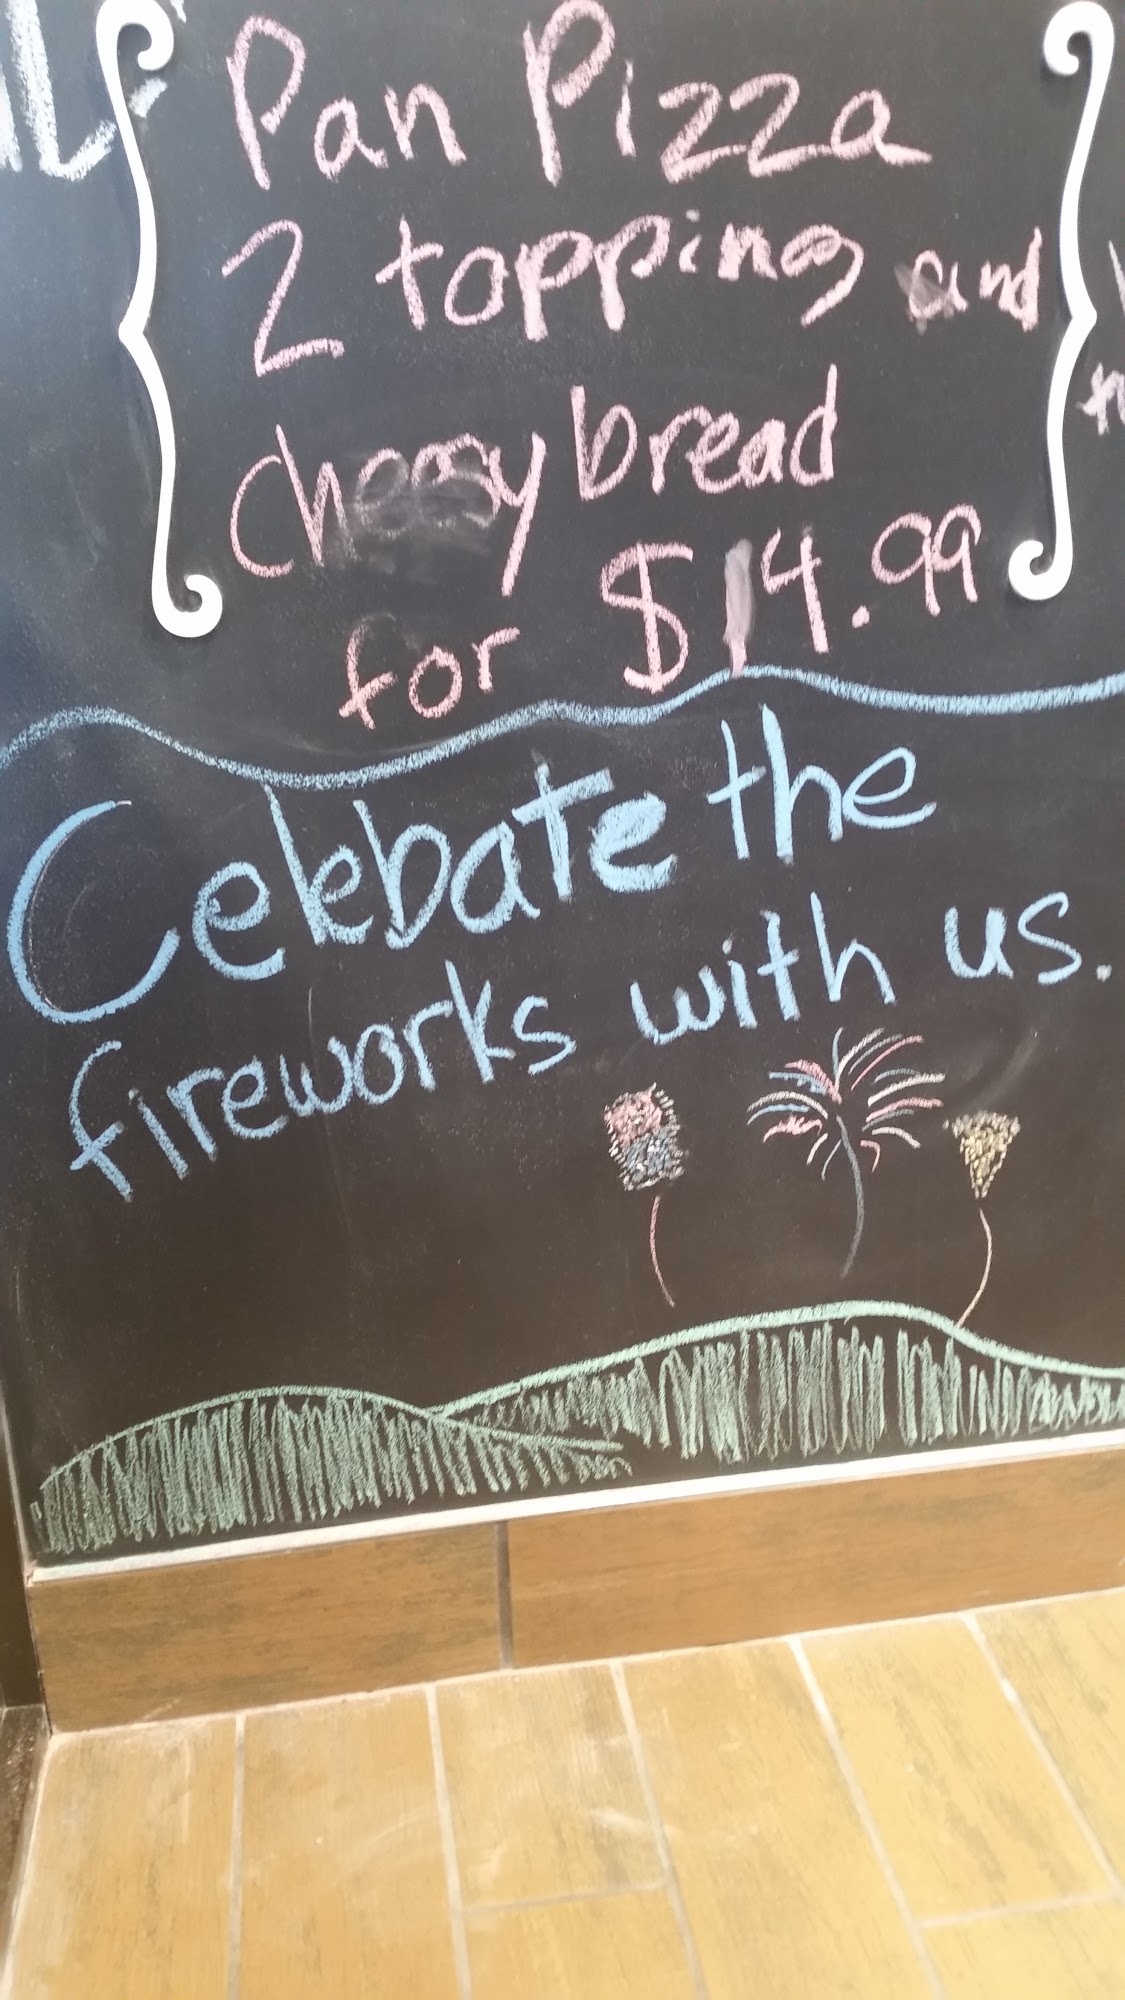 Pan Pizza
2 topping and
Cheesy bread
for $14.99
Celebate the
fireworks with us.